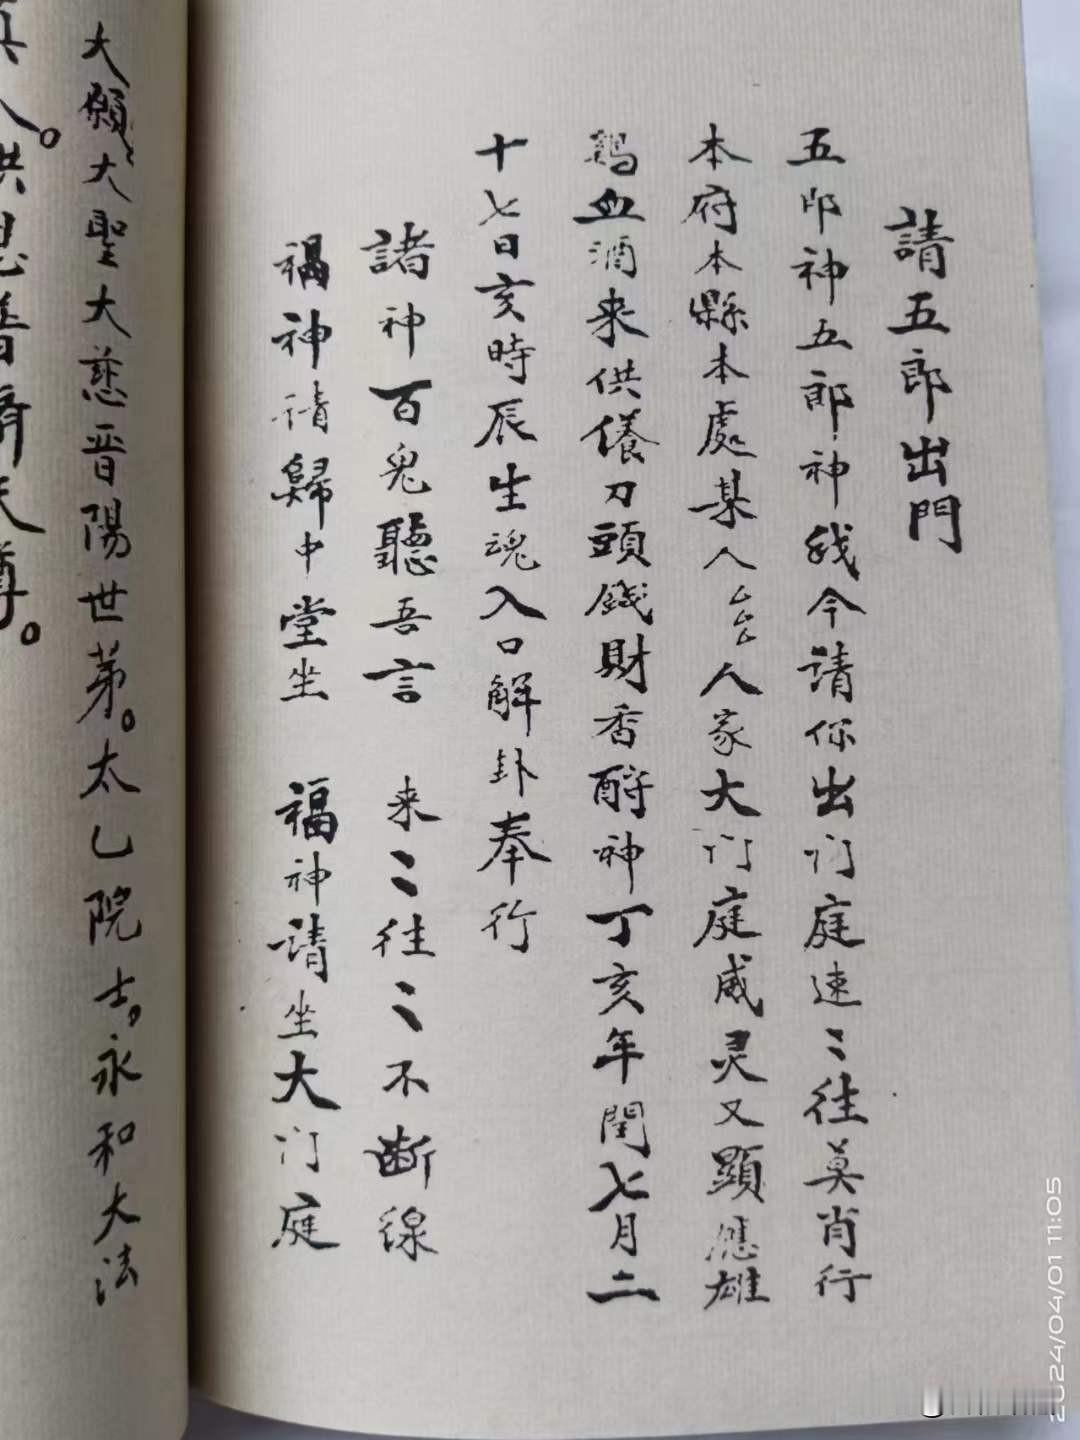 請五郎出門
五郎神五郎神我今請你出门庭速〻往莫肖行
本府本縣本處某人家大门庭威灵又顯應雄
鷄血酒来供養刀頭錢財香酧神丁亥年閏七月二
十七日亥時辰生魂入口解卦奉行
諸神百鬼聽吾言 来〻往〻不断線
福神請歸中堂坐 福神請坐大门庭
大願、大聖大慈晋陽世茅。太乙院士，永和大法
真人。洪恩普濟天尊。
2024/04/01 11:05